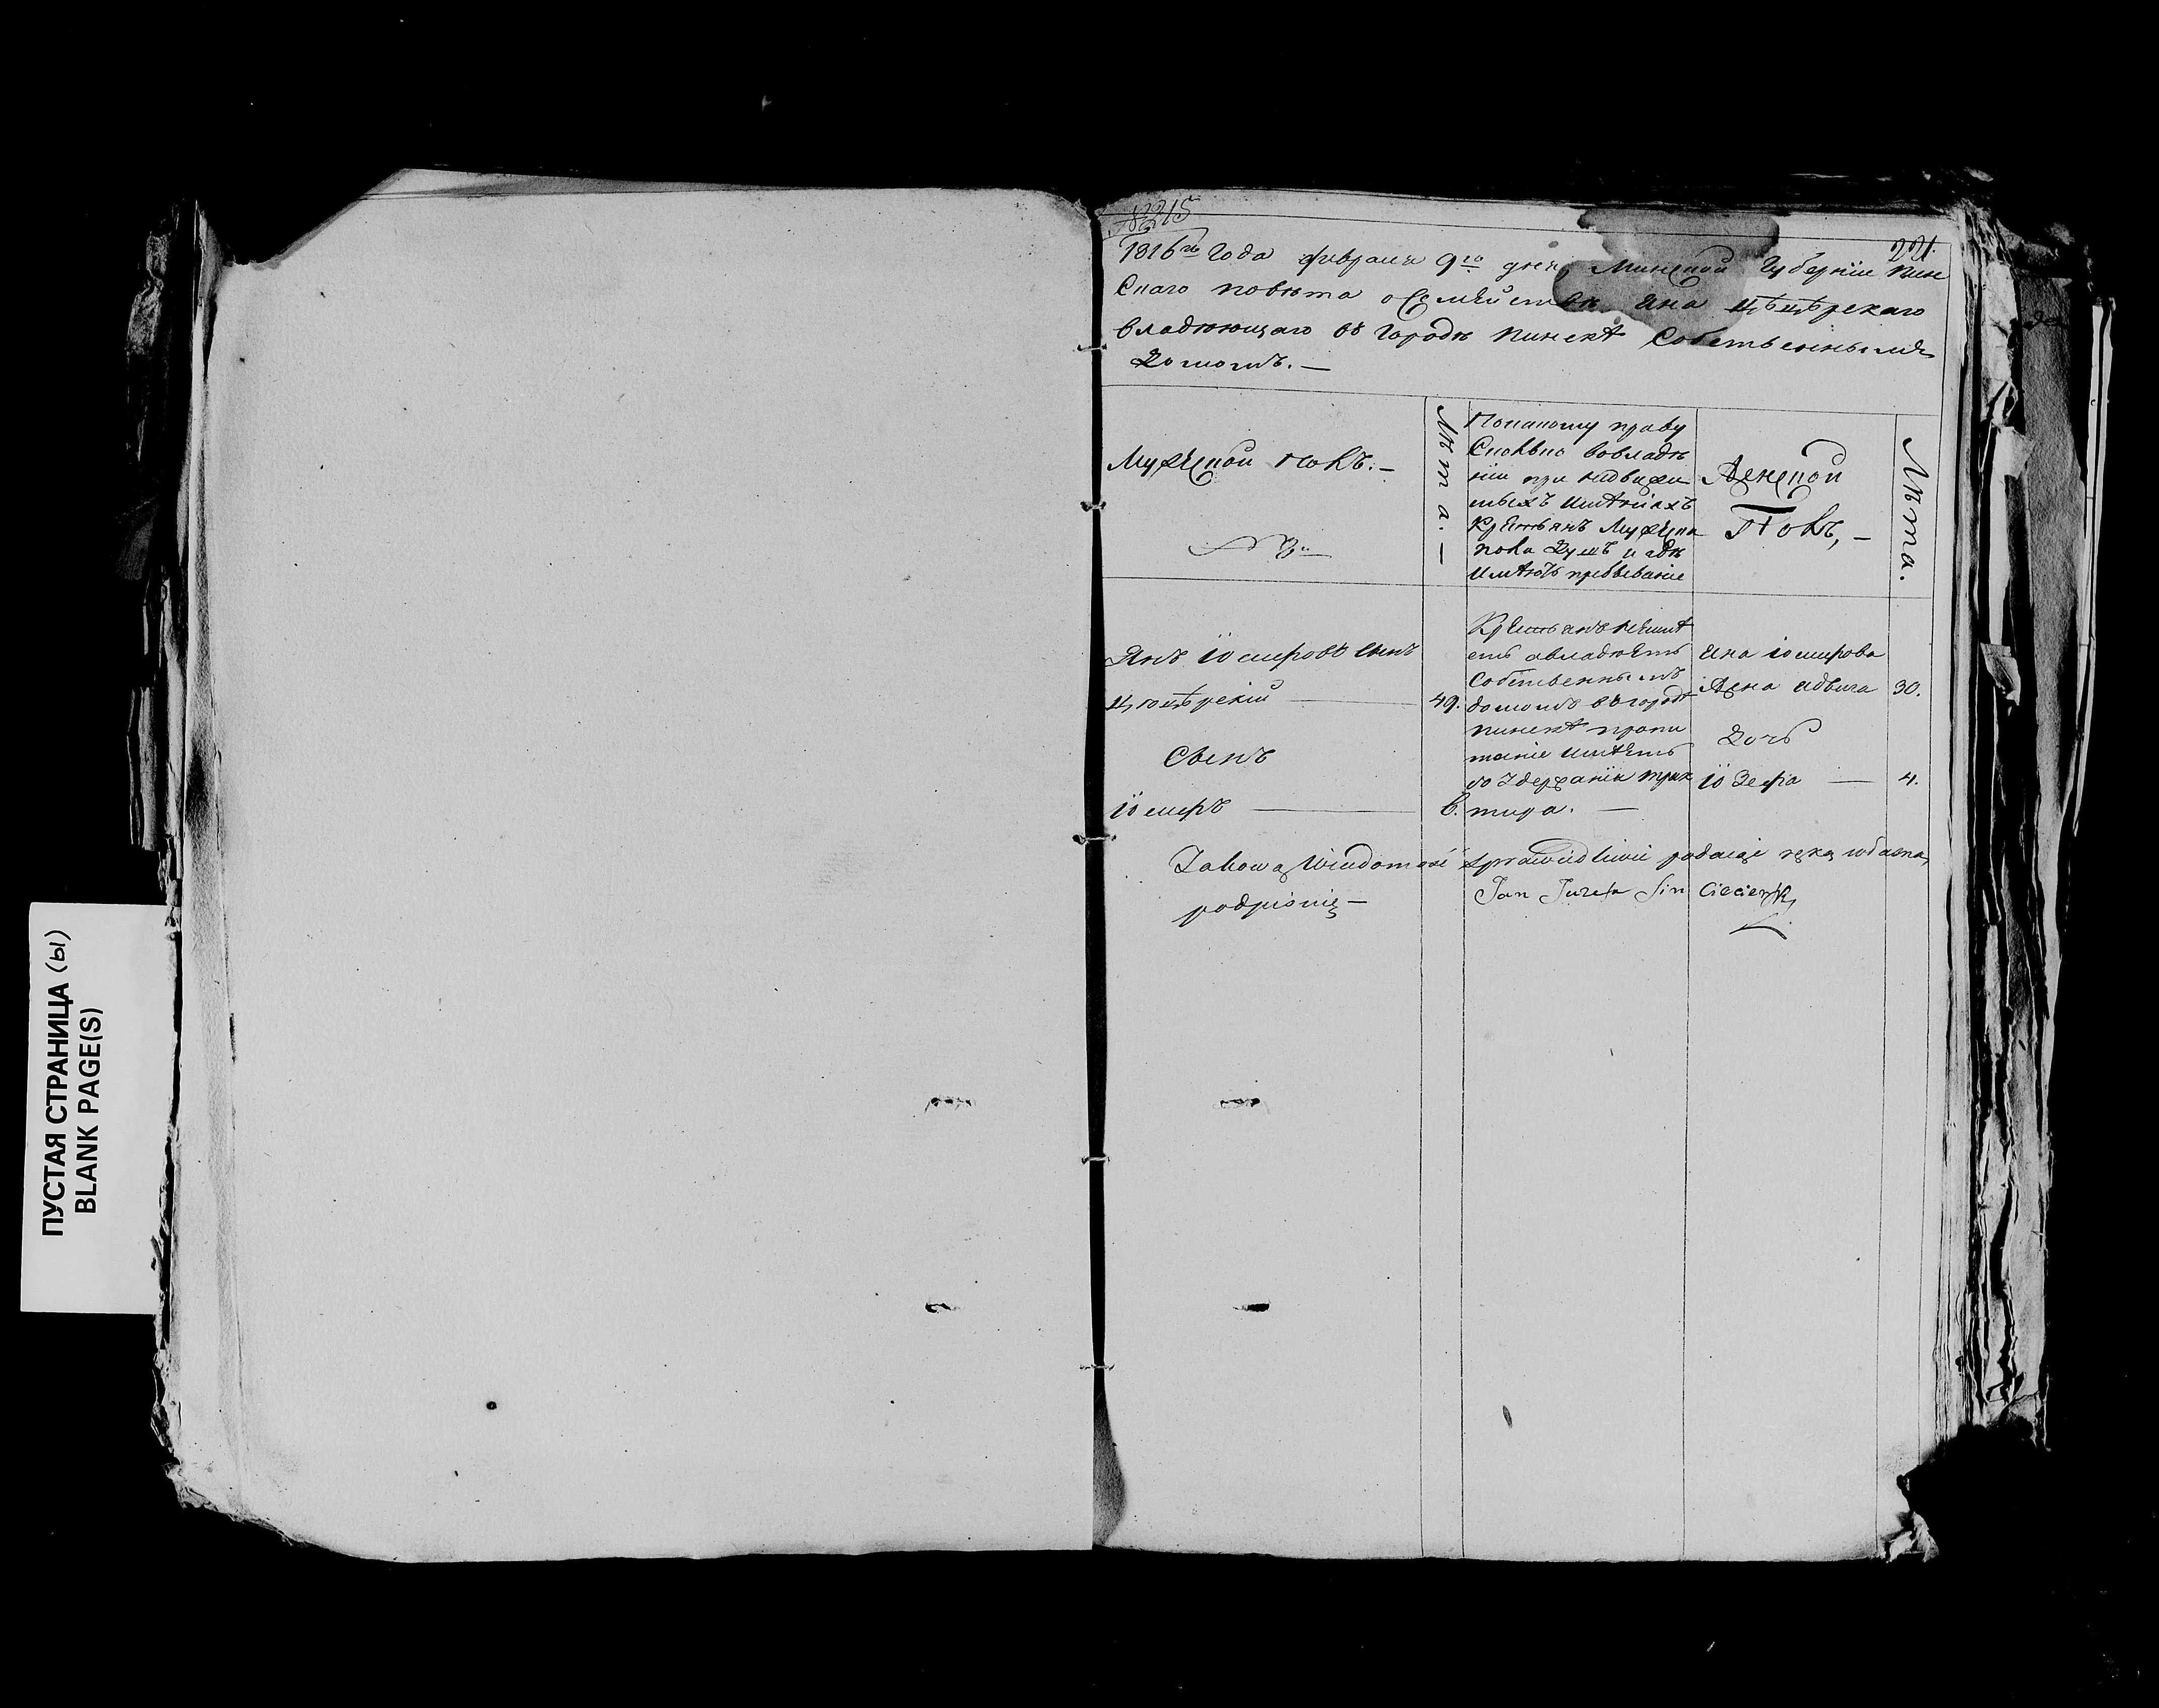 ПУСТАЯ СТРАНИЦА (ы)
BLANK PAGE(S)
№ 215
221.
1816го Года февраля 9го дня, Минской Губернии Пин
скаго повѣта о Семѣйствѣ Яна Цѣцѣрскаго
владѣющаго въ Городѣ Пинскѣ Собственнымъ
Домомъ. —
Мужеской полъ. —
Лѣта. —
Покакому праву
Сколько вовладѣ
ніи при недвижи
мыхъ имѣніахъ
Крестьянъ Мужеска
пола Душъ и гдѣ
имѣютъ пребываніе
Женской
Полъ, —
Лѣта.
Янъ Іосифовъ сынъ
Цѣцѣрскій — 49.
Сынъ
Іосифъ — 6.
Крестьянъ неимѣ
етъ авладѣетъ
Собственнымъ
домомъ въ городѣ
Пинскѣ пропи
таніе имѣетъ
во Здержаніи трак
тира. —
Яна Іосифова
Жена Ядвига 30.
Дочь
Іозефа — 4.
Takową Wiadomość sprawiedliwie podaię ręką własną
podpisuię — Jan Juzefa Sin Ciecierski